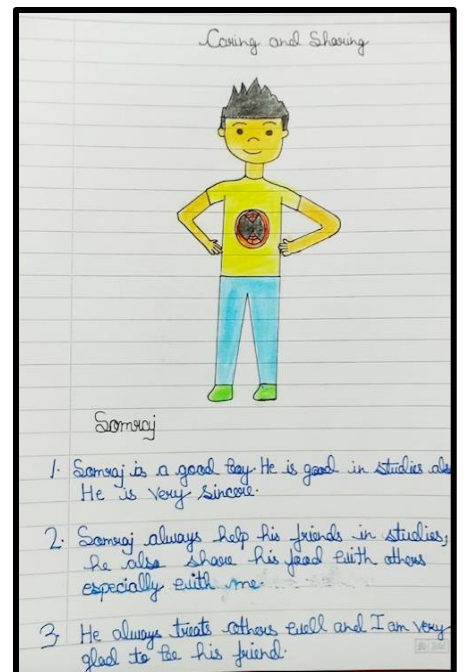 Caring and Sharing
Somraj
1. Somraj is a good boy. He is good in studies also
He is very sincere.
2. Somraj always help his friends in studies,
he also share his food with others
especially with me.
3. He always treats others well and I am very
glad to be his friend.